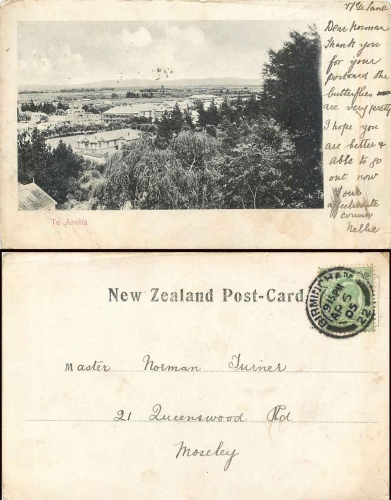 Dear Norman
Thank you
for your
Postcard the
butterflies
are very pretty
I hope you
are better &
able to go
out now
Your
affectionate
cousin
Nellie
Te Aroha
New Zealand Post-Card
BIRMINGHAM
9 15PM
05
22
Master Norman Turner
21 Queenswood Rd
Moseley